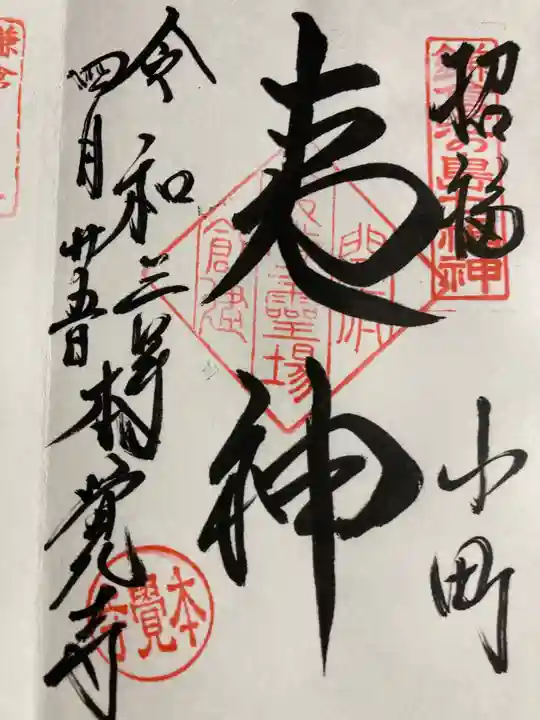 招福
小町
夷神
令和三年
四月廿五日
本覚寺
鎌倉江の島七福神
開洞
霊場
創建
本覺寺
鎌倉